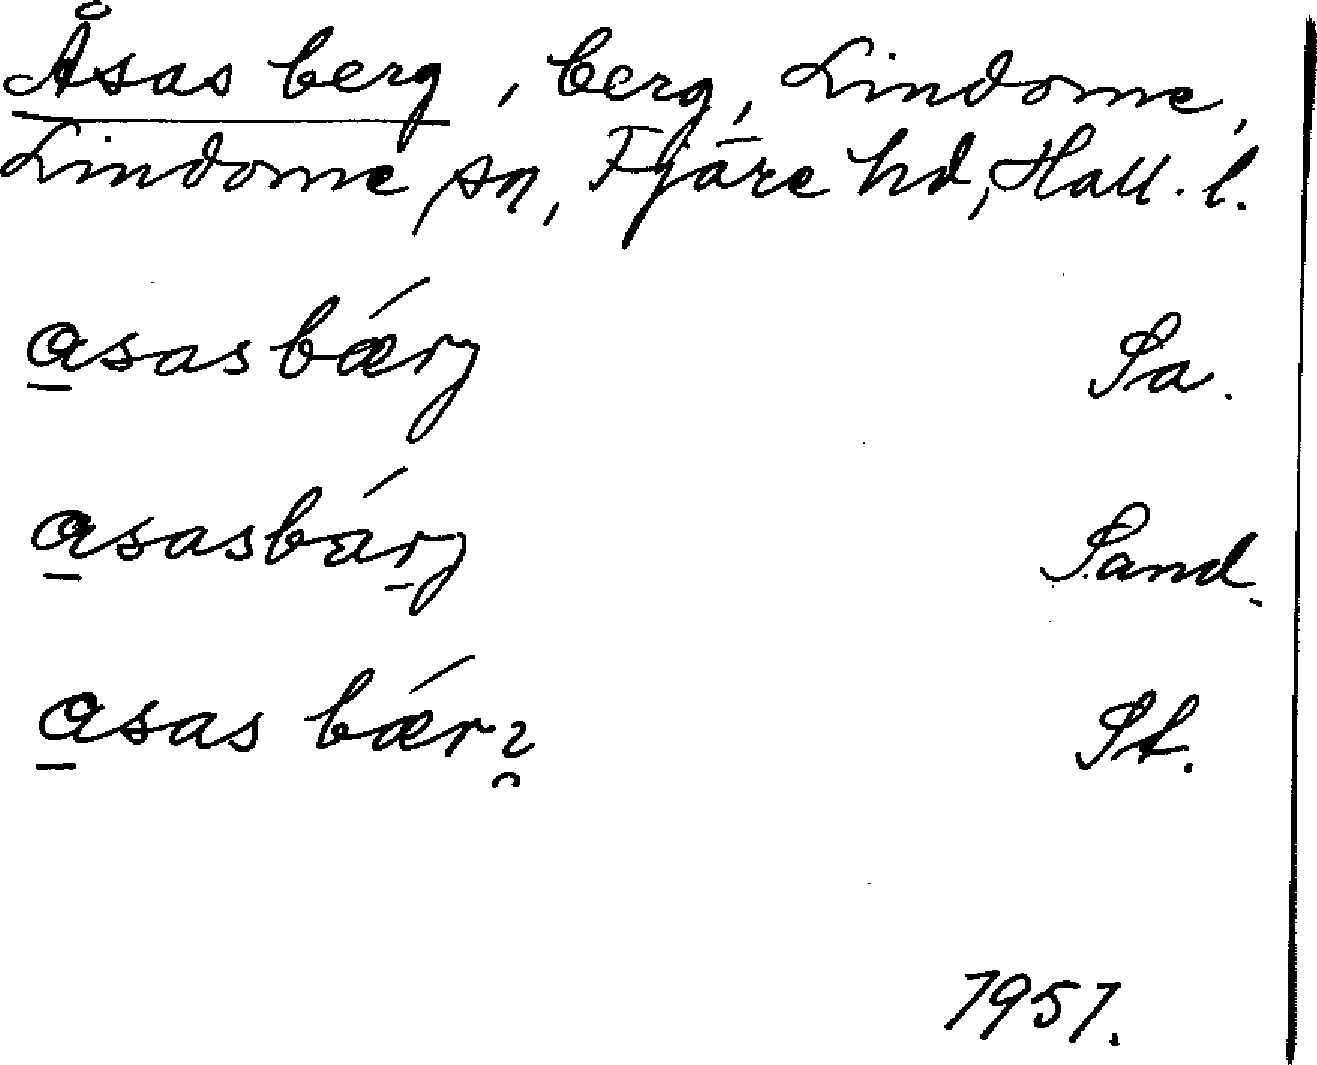 Åsas berg, berg, Lindome,
Lindome sn, Fjäre hd, Hall. l.
asasbærj Sa.
asasbárj Sand.
asas bær St.
1951.